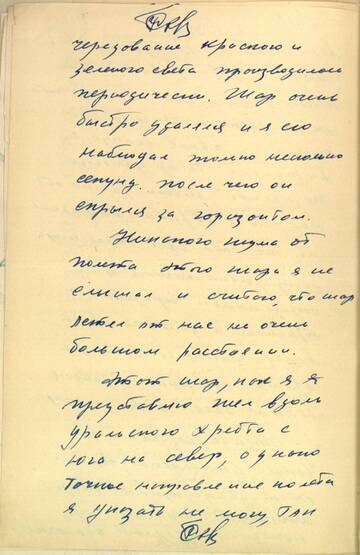 чередование красного и
зеленого света производилось
периодически. Шар очень
быстро удалялся и я его
наблюдал только несколько
секунд. после чего он
скрылся за горизонтом.
Никакого шума от
полета этого шара я не
слышал и считаю, что шар
летел от нас на очень
большом расстоянии.
Этот шар, как я
представляю шел вдоль
уральского хребта с
юга на север, однако
точное направление полета
я указать не могу, так